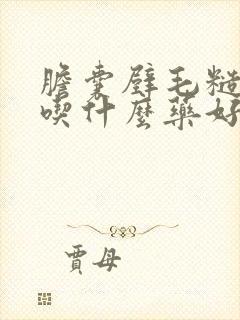 膽囊壁毛糙
喫什麼藥好
賈母